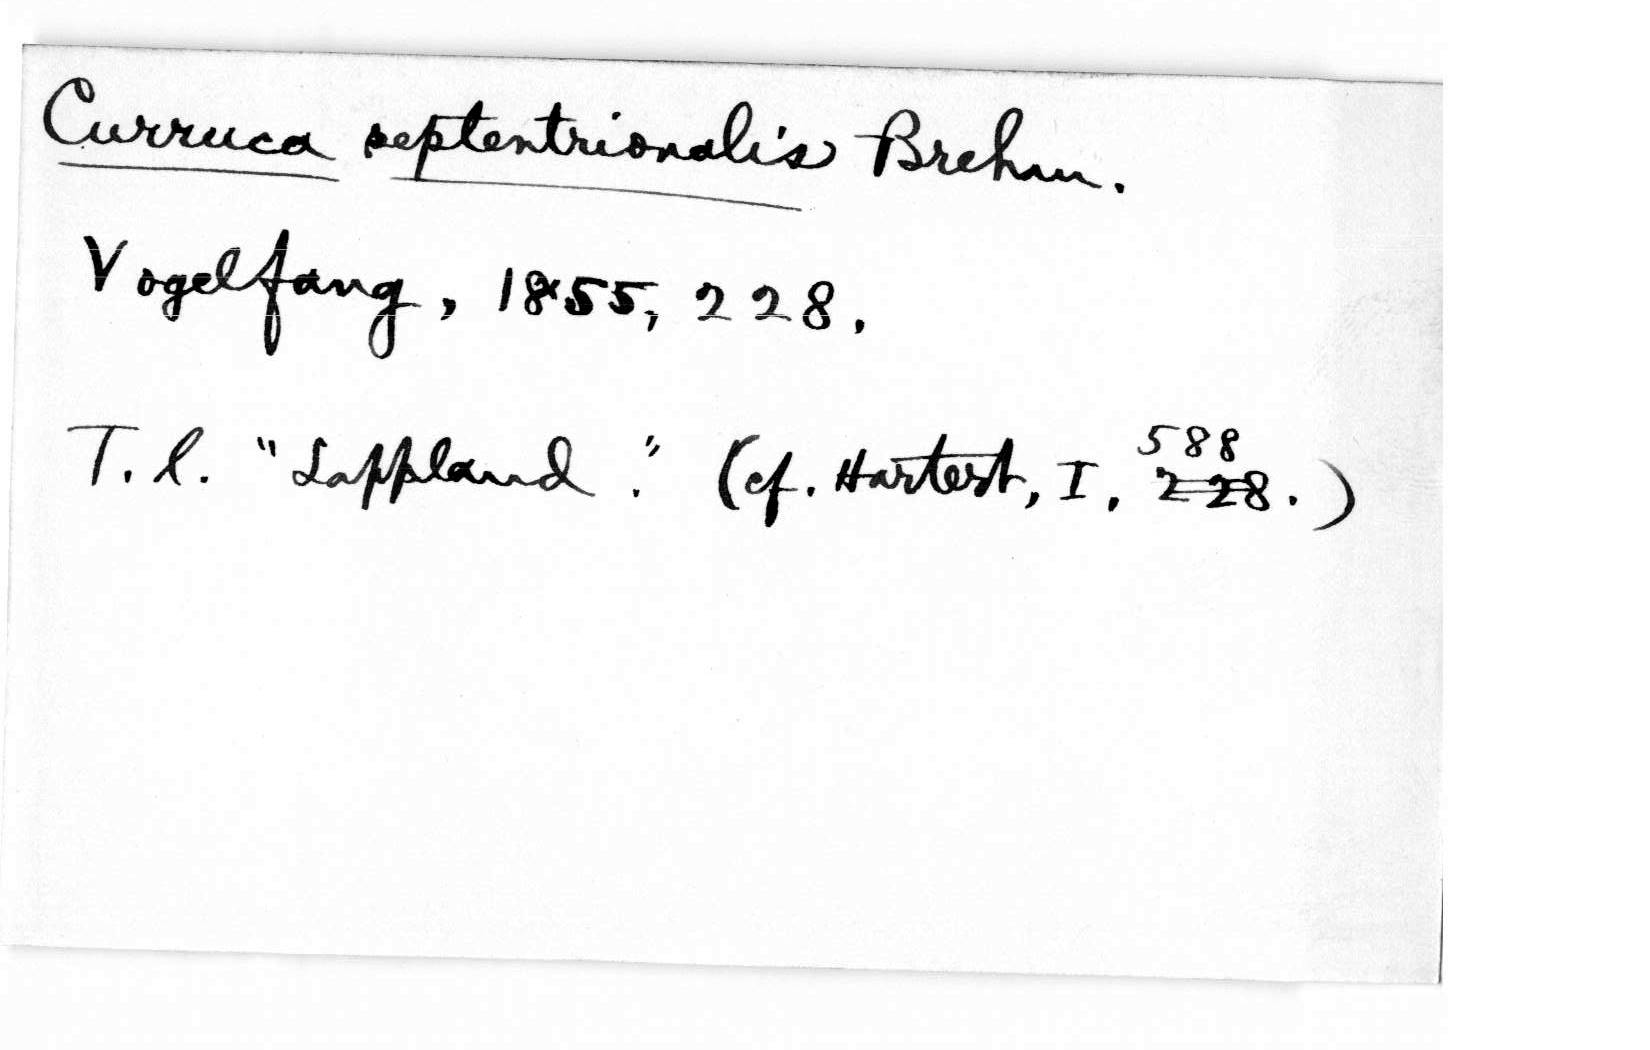 Curruca septentrionalis Brehm.
Vogelfang, 1855, 228.
T. l. "Lappland." (cf. Hartert, I, 588 228.)